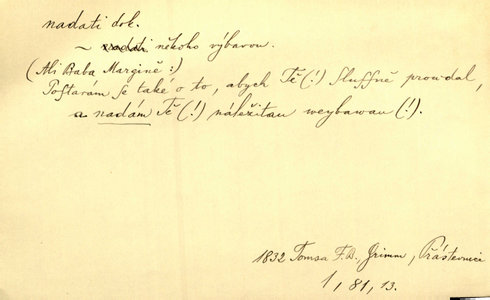 nadati dok.
~ nadati někoho výbavou.
(Ali Baba Margině :)
Postaram se také o to, abych Tě (!) sluffně prowdal,
a nadám Tě (!) náležitau weybawau (!).
1832 Tomsa F.B., Grimm, Přástevnice
1, 81, 13.